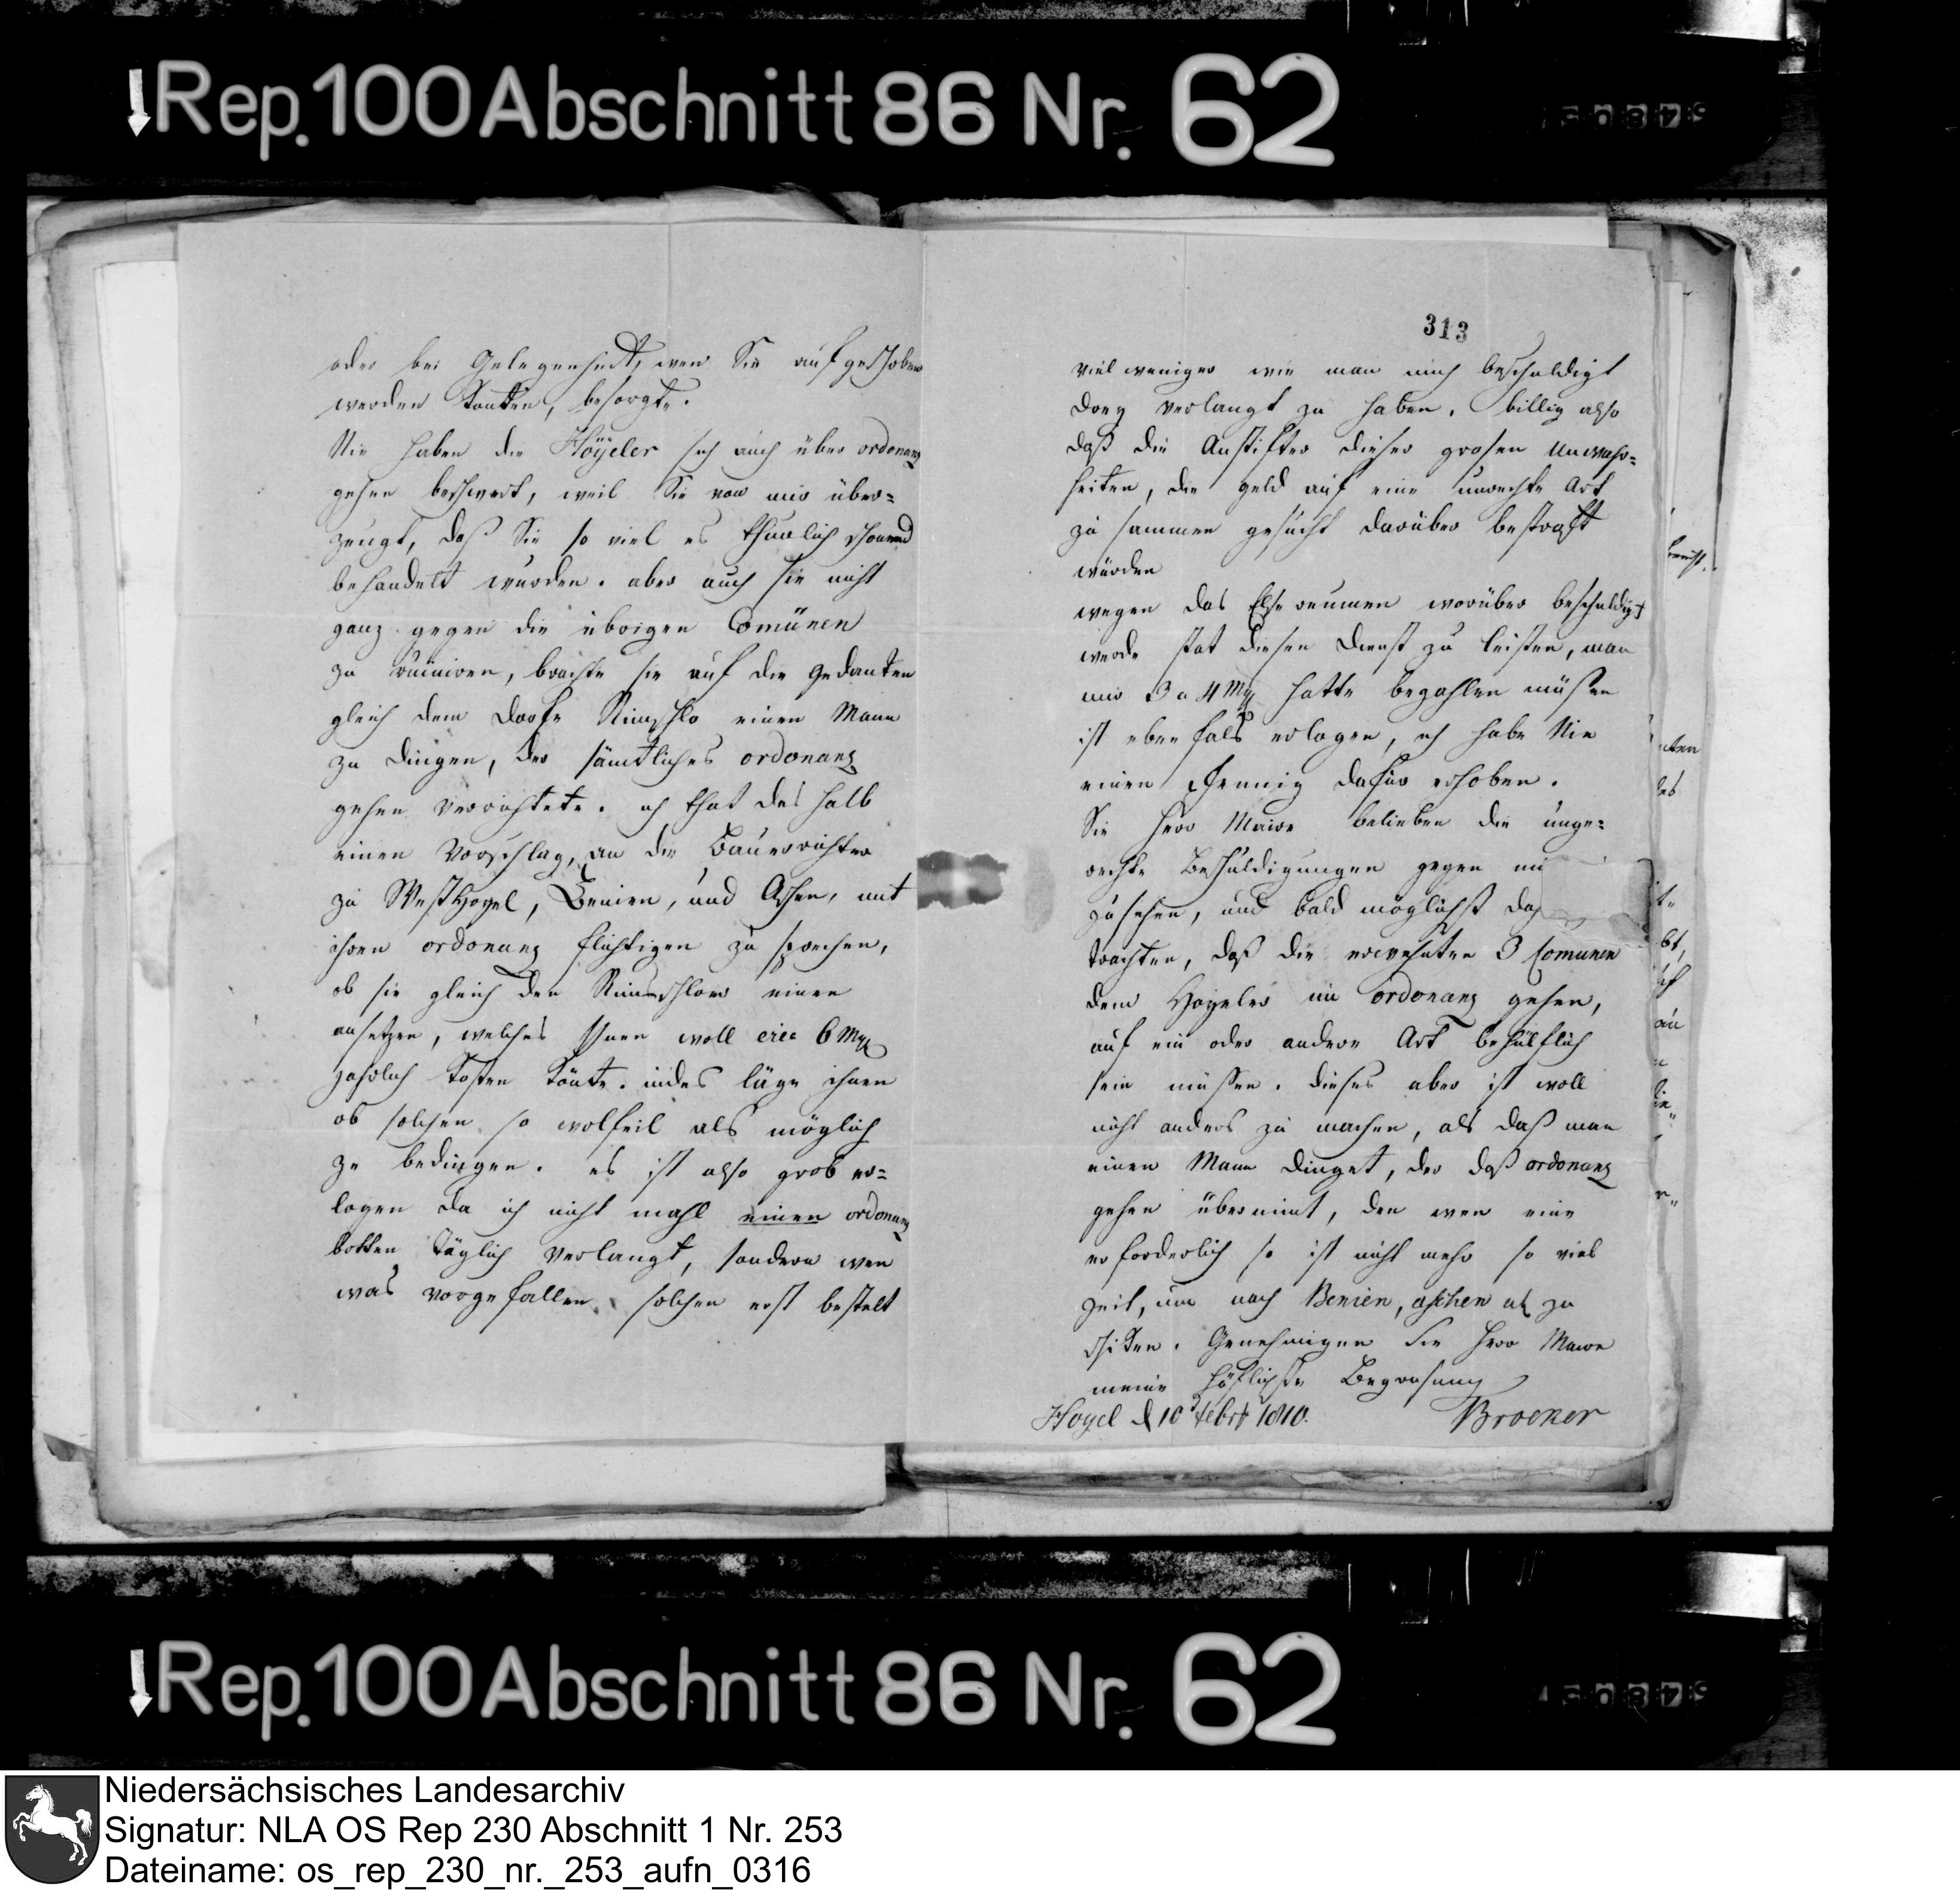 Rep. 100 Abschnitt 86 Nr. 62
oder bei Gelegenheit, wen Sie aufgeschoben
werden konten, besorgte.
Nie haben die Höyeler sich auch über ordonanz
gehen beschwert, weil Sie von mir über=
zeugt, daß Sie so viel es thunlich schonend
behandelt wurden. aber auch sie nicht
ganz gegen die übrigen Comünen
zu ruiniren, brachte sie auf die gedanken
gleich dem Dorfe Rimschlo einen Mann
zu dingen, der sämtliches ordonanz
gehen verrichtete. ich that des halb
einen Vorschlag, an die Bauerrichter
zu WestHoyel, Bennien, und Aschen, mit
ihren ordonanz flichtigen zu sprechen,
ob sie gleich den Rimschloer einen
ansetzen, welches Ihnen woll circ 6 Mgr
jahrlich kosten könte. indes läge ihnen
ob solchen so wolfeil als möglich
zu bedingen. es ist also grob er=
logen da ich nicht mahl einen ordonanz
botten täglich verlangt, sondern wen
was vorgefallen solchen erst bestelt
313
viel weniger wie man mich beschuldigt
Drey verlangt zu haben. billig also
daß die Anstifter dieser grosen Unwahr=
heiten, die geld auf eine unrechte Art
zu sammen gesucht darüber bestraft
würden
wegen das Else reumen worüber beschuldigt
werde stat diesen Dienst zu leisten, man
mir 3 a 4 Mgr hatte bezahlen müßen
ist eben fals erlogen, ich habe Nie
einen Pfennig dafür erhoben.
Sie Herr Maire belieben die unge=
rechte Beschuldigungen gegen mi
zusehen, und bald möglichst da
trachten, daß die erwehnten 3 Comunen
dem Hoyeler im ordonanz gehen,
auf ein oder andere Art behülflich
sein müssen. dieses aber ist woll
nicht anders zu machen, als daß man
einen Mann dinget, der daß ordonanz
gehen übernimt, den wen eine
erforderlich so ist nicht mehr so viel
zeit, um nach Bennien, aschen zu
schiken. Genehmigen Sie Herr Maire
meine höflichste Begrüsung
Hoyel d 10 Febr 1810. Broeker
Rep. 100 Abschnitt 86 Nr. 62
Niedersächsisches Landesarchiv
Signatur: NLA OS Rep 230 Abschnitt 1 Nr. 253
Dateiname: os_rep_230_nr._253_aufn_0316